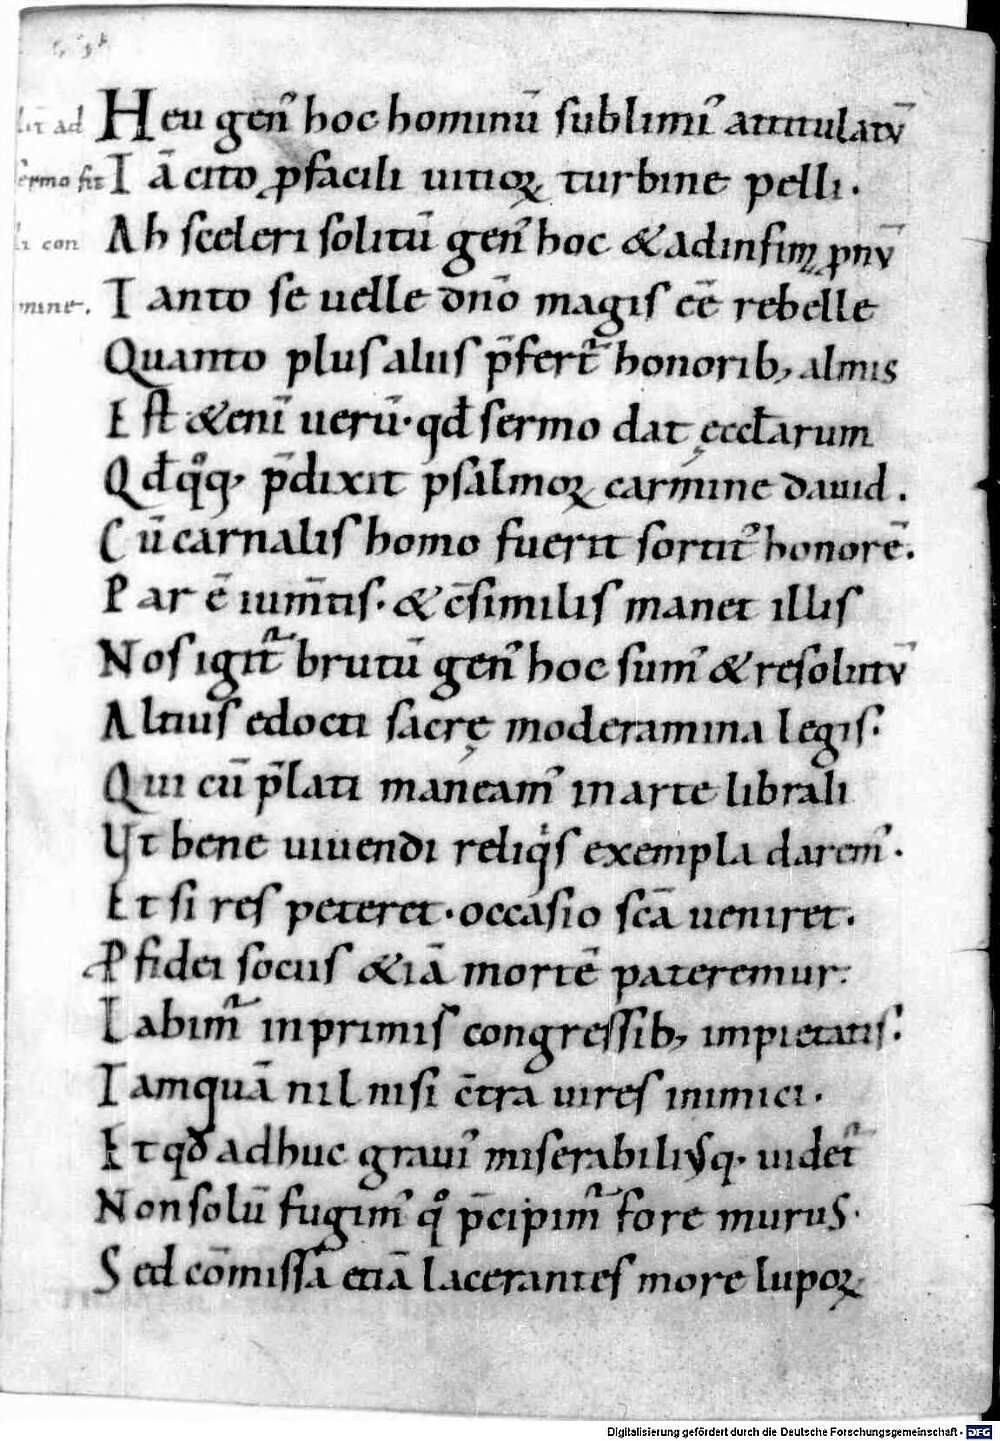 Heu gen᾽ hoc hominū sublimi᾽ attitulatv̄
Iā cito ꝓfacili uitioꝝ turbine pelli.
Ah sceleri solitū gen᾽ hoc & adinfimꝝ ꝓnv̄
Tanto se uelle dn̄o magis eē rebelle
Quanto plus alius p̄fert᾽ honorib; almis
Est &eni᾽ uerū· qd̄ sermo dat ęccƚarum
Qd̄ qͦq; p̄dixit psalmoꝝ carmine dauid.
Cū carnalis homo fuerit sortit᾽ honorē.
Par ē ium̄tis· & c̄similis manet illis
Nos igit᾽ brutū gen᾽ hoc sum᾽ & resolutv̄
Altius edocti sacrę moderamina legis:
Qui cū p̄lati maneam᾽ in arte librali
Ut bene uiuendi reliqͥs exempla darem᾽.
Et si res peteret· occasio scā ueniret.
P fidei socus & iā mortē pateremur:
Labim᾽ inprimis congressib; impietatis:
Tamquā nil nisi c̄tra uires inimici.
Et qd̄ adhuc graui᾽ miserabiliusq; uidet᾽
Non solū fugim᾽ qͦ p̄cipim᾽ fore murus·
Sed com̄issā etiā lacerantes more lupoꝝ
lit̄ ad
sermo fit
li con
mine.
Digitalisierung gefördert durch die Deutsche Forschungsgemeinschaft - DFG